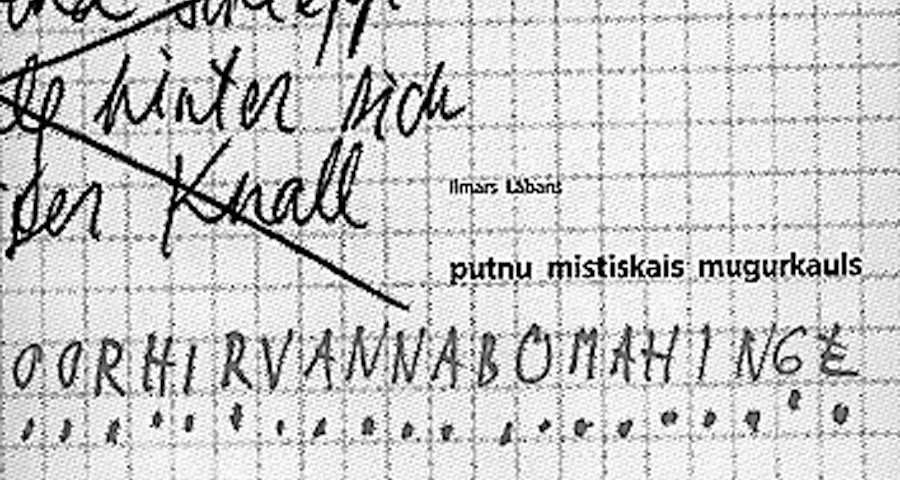 hinter sich
der Knall
Ilmars Lābans
putnu mistiskais mugurkauls
OORHIRVANNABOMAHINGE